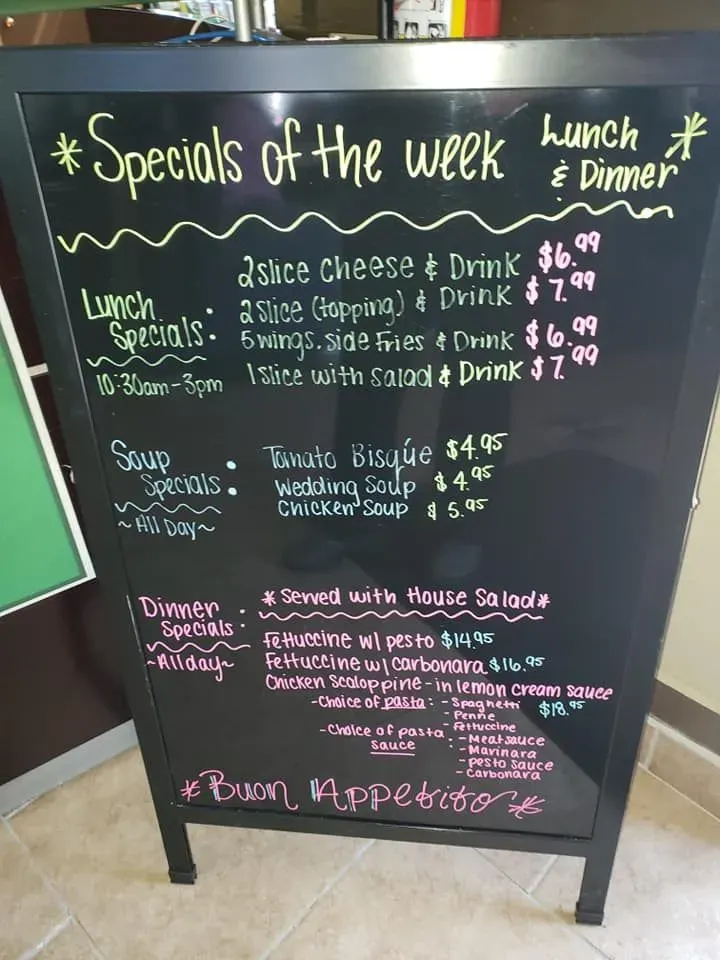 *Specials of the week Lunch & Dinner*
Lunch Specials:
10:30am-3pm
2 slice cheese & Drink $6.99
2 slice (topping) & Drink $7.99
5 wings. side fries & Drink $6.99
1 slice with salad & Drink $7.99
Soup Specials:
~All Day~
Tomato Bisqúe $4.95
Wedding Soup $4.95
Chicken Soup $5.95
Dinner Specials:
~All day~
*Served with House Salad*
Fettuccine w/ pesto $14.95
Fettuccine w/ carbonara $16.95
Chicken Scaloppine - in lemon cream sauce
$18.95
-Choice of pasta: - Spaghetti
- Penne
- Fettuccine
-Choice of pasta sauce: - Meatsauce
- Marinara
- pesto sauce
- Carbonara
*Buon Appetito*